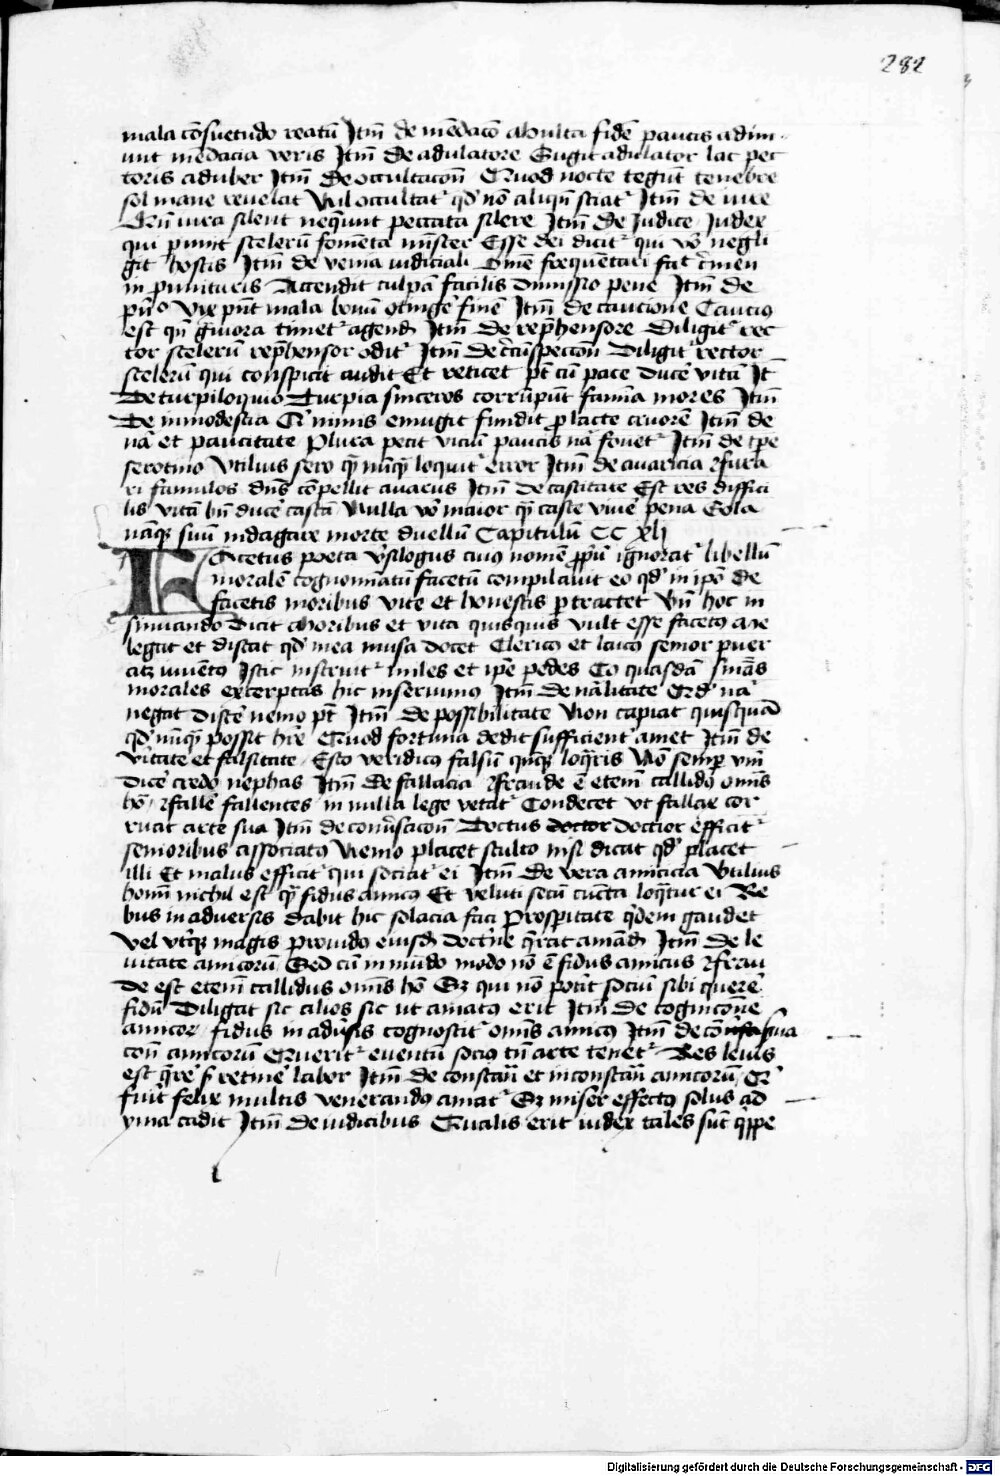 282
mala cōsuetudo reatū Itm̄ de mēdacō Multa fidē paucis adim
unt mēdacia veris Itm̄ de adulatore Sugit adulator lac pec
toris ad uber Itm̄ de occultacōn Quod nocte tegūt tenebre
sol mane revelat Nil occultat᷑ qd̄ nō aliqn̄ sciat᷑ Itm̄ de iure
Cū iura silent neq̄unt peccata silere Itm̄ de Judice Judex
qui punit scelerū fomēta mīster Esse dei dicit᷑ qui vō negli
git hostis Itm̄ de venia iudiciali Omē frequētari fac c̄men
inpunitatis Accendit culpā facilis dimissio pene Itm̄ de
Vix pn̄t mala bonū ꝯtingē finē Itm̄ de caucione Cautius
est qn̄ gviora timet᷑ agend Itm̄ de rep̄hensore Diligit᷑ rec
tor scelerū rep̄hensor odit᷑ Itm̄ de c̄cūspeccōn Diligit᷑ rector
scelerū qui conspicit audit Et reticet pt̄ cū pace ducē vitā It
De turpiloquio Turpia sinceros corrūpūt famīa mores Itm̄
De inmodestia Qi nimis emugit fundit p lacte cruorē Itm̄ de
nā et paucitate Plura petit viciū paucis nā fovet᷑ Itm̄ de tpe
serotino Utilius sero qȝ nūqȝ loquit᷑ error Itm̄ de avaricia ⁊ fura
ri famulos dn̄s cōpellit avarus Itm̄ de castitate Est res diffici
lis vitā bn̄ ducē castā Nulla vō maior qȝ caste vivē pena Sola
namqȝ suū indagare morte duellū Capitulū CC xli
FAcetus poeta vsilogus cuius nomē ppiū ignorat᷑ libellū
moralē cognomīatū facetū compilavit eo qd̄ in ipō de
facetis moribus vite et honestis ptractet Vn̄ hoc in
sinuando dicit Moribus et vita quisquis vult esse facetus Me
legat et discat qd̄ mea musa docet Clericus et laicus senior puer
atqȝ iuvētus Istic instruit᷑ miles et ipē pedes Eo quasdā sniās
morales excerptas hic inseruimus Itm̄ de nālitate Qd̄ nā
negat discē nemo pt̄ Itm̄ de possibilitate Non capiat quisquā
qd̄ nūqȝ possit hr̄e Quod fortuna dedit sufficient᷑ amet Itm̄ de
v̄itate et falsitate Esto veridicus falsū qnqȝ loq̄ris Nō semp vm̄
dicē credo nephas Itm̄ de fallacia ⁊ fraude ē etem̄ callidus omīs
hō ⁊ fallē fallentes in nulla lege vetat᷑ Condecet ut fallax cor
ruat arte sua Itm̄ de cōv̄sacōn Doctus doctor doctior efficit᷑
senioribus associatus Nemo placet stulto nisi dicat qd̄ placet
illi Et malus efficit᷑ qui sociat᷑ ei Itm̄ de vera amicicia Utilius
homī nichil est qȝ fidus amicus Et veluti secū cūcta loq̄tur ei Re
bus in adversis dabit hic solacia fari Prospitate q̄dem gaudet
vel utrqȝ magis pvido eiusd doctīe q̄rat amād Itm̄ de le
vitate amicorū Sed cū in mūdo modo nō ē fidus amicus ⁊ frau
de est etem̄ callidus omīs hō Sȝ qui nō poīt sociū sibi querē
fidū Diligat sic alios sic ut amatus erit Itm̄ de cognicōne
amicor fidus in adv̄sis cognoscit᷑ omīs amicus Itm̄ de cōv̄sa
cōn amicorū Querit᷑ eventū socius tn̄ arte tenet᷑ Res levis
est q̄re s̄ retinē labor Itm̄ de constan et inconstan amicorū Qi
fuīt felix multis venerandus amat᷑ Sȝ miser effectus solus ad
yma cadit Itm̄ de iudicibus Qualis erit iudex tales sūt q̄ppe
Digitalisierung gefördert durch die Deutsche Forschungsgemeinschaft - DFG